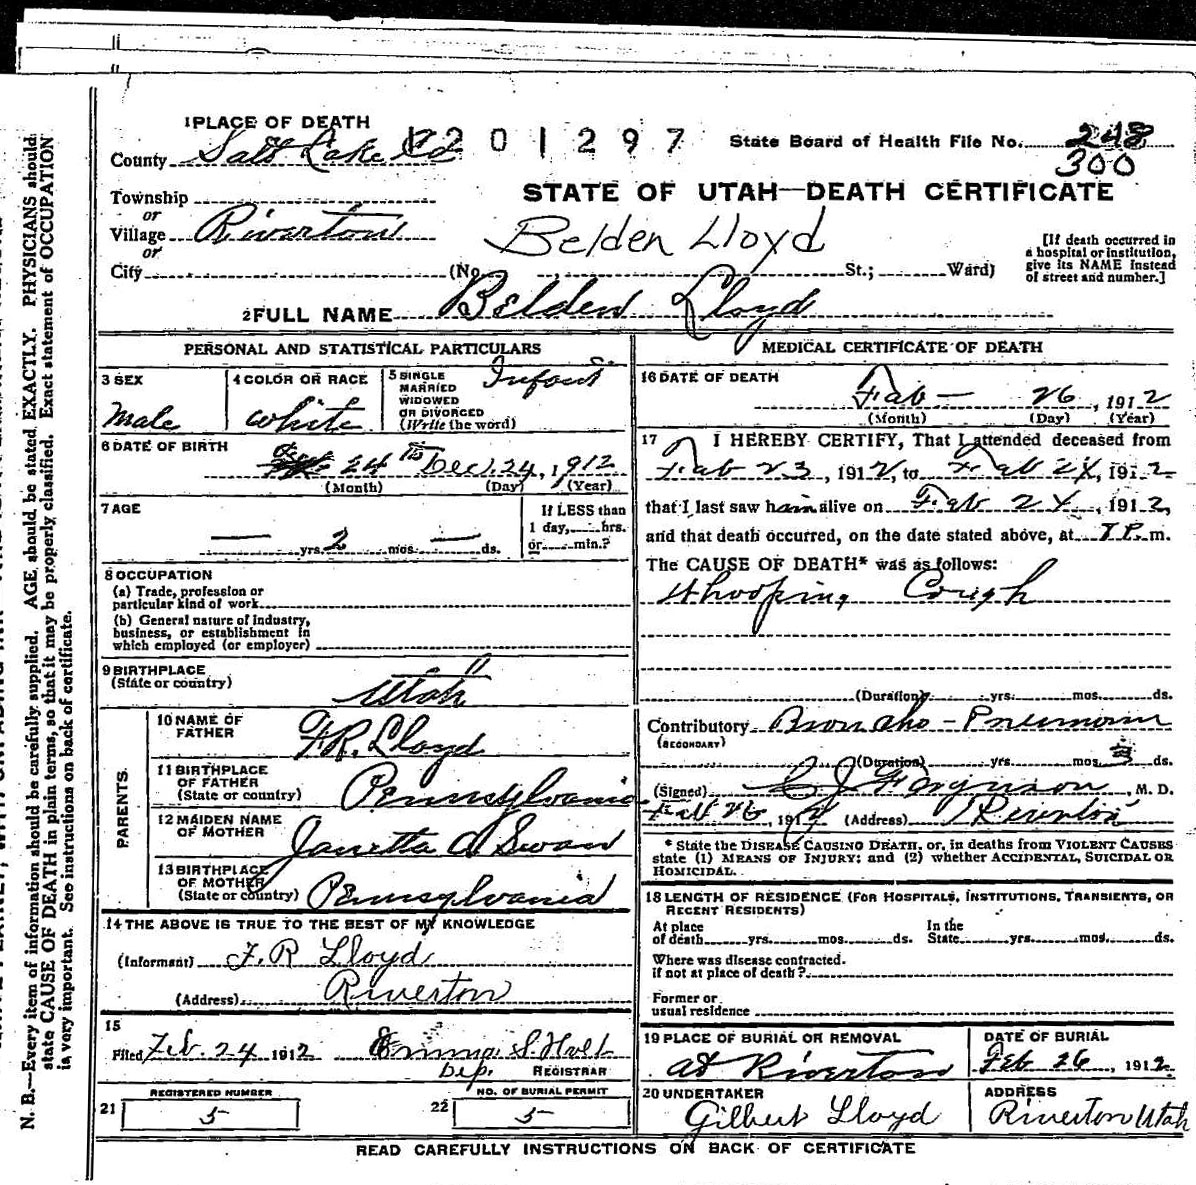 1 PLACE OF DEATH
1201297
State Board of Health File No. 248
300
County Salt Lake Co
STATE OF UTAH—DEATH CERTIFICATE
Township
or
Village Riverton
Belden Lloyd
or
City (No. , St.; Ward)
[If death occurred in
a hospital or institution,
give its NAME instead
of street and number.]
2 FULL NAME Belden Lloyd
PERSONAL AND STATISTICAL PARTICULARS
3 SEX
Male
4 COLOR OR RACE
White
5 SINGLE
MARRIED
WIDOWED
OR DIVORCED
(Write the word)
Infant S.
6 DATE OF BIRTH
24 Dec. 24, 1912
(Month) (Day) (Year)
7 AGE
— yrs. 2 mos. — ds.
If LESS than
1 day, hrs.
or min.?
8 OCCUPATION
(a) Trade, profession or
particular kind of work
(b) General nature of industry,
business, or establishment in
which employed (or employer)
9 BIRTHPLACE
(State or country)
Utah
PARENTS.
10 NAME OF
FATHER
F.R. Lloyd
11 BIRTHPLACE
OF FATHER
(State or country)
Pennsylvania
12 MAIDEN NAME
OF MOTHER
Janetta A Swan
13 BIRTHPLACE
OF MOTHER
(State or country)
Pennsylvania
14 THE ABOVE IS TRUE TO THE BEST OF MY KNOWLEDGE
(Informant) F. R Lloyd
(Address) Riverton
15
Filed Feb. 24 1912 Emma S. Holt
Dep. REGISTRAR
REGISTERED NUMBER
21 5
NO. OF BURIAL PERMIT
22 5
MEDICAL CERTIFICATE OF DEATH
16 DATE OF DEATH
Feb — 26, 1912
(Month) (Day) (Year)
17 I HEREBY CERTIFY, That I attended deceased from
Feb 23, 1912, to Feb 24, 1912
that I last saw him alive on Feb 24, 1912,
and that death occurred, on the date stated above, at 7 P. m.
The CAUSE OF DEATH* was as follows:
Whooping Cough
(Duration) yrs. mos. ds.
Contributory Broncho-Pneumonia
(SECONDARY)
(Duration) yrs. mos. 3 ds.
(Signed) , M. D.
Feb 26, 1912 (Address) Riverton
* State the DISEASE CAUSING DEATH, or, in deaths from VIOLENT CAUSES
state (1) MEANS OF INJURY; and (2) whether ACCIDENTAL, SUICIDAL OR
HOMICIDAL.
18 LENGTH OF RESIDENCE (FOR HOSPITALS, INSTITUTIONS, TRANSIENTS, OR
RECENT RESIDENTS)
At place
of death yrs. mos. ds.
In the
State yrs. mos. ds.
Where was disease contracted.
if not at place of death?
Former or
usual residence
19 PLACE OF BURIAL OR REMOVAL
at Riverton
DATE OF BURIAL
Feb 26, 1912
20 UNDERTAKER
Gilbert Lloyd
ADDRESS
Riverton Utah
READ CAREFULLY INSTRUCTIONS ON BACK OF CERTIFICATE
N. B.—Every item of information should be carefully supplied. AGE should be stated EXACTLY. PHYSICIANS should
state CAUSE OF DEATH in plain terms, so that it may be properly classified. Exact statement of OCCUPATION
is very important. See instructions on back of certificate.